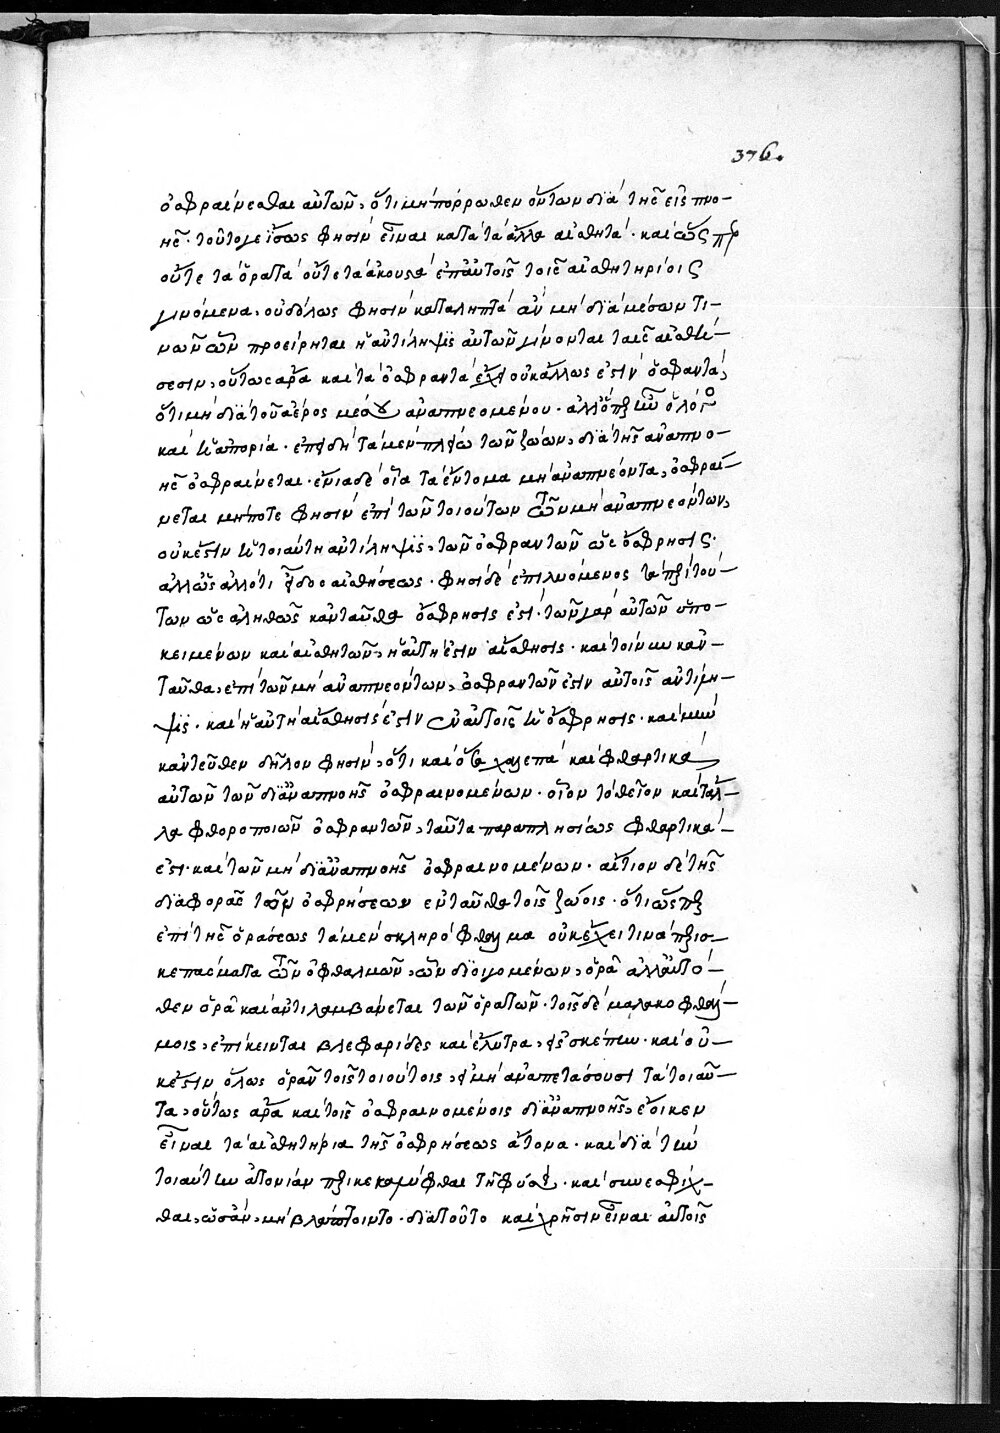 376.
ὀσφραίνεσθαι αὐτῶν, ὅτι μὴ πόρρωθεν ὄντων διὰ τῆς εἰσπνο-
ῆς· τοῦτό γε ἴσως φησὶν εἶναι κατὰ τὰ ἄλλα αἰσθητά· καὶ ὡς
οὔτε τὰ ὁρατὰ οὔτε τὰ ἀκουστὰ ἐπ' αὐτοῖς τοῖς αἰσθητηρίοις
γινόμενα, οὐδόλως φησὶν καταληπτὰ ἂν μὴ διὰ μέσων τι-
νῶν ὧν προείρηται ἡ ἀντίληψις αὐτῶν γίνονται ταῖς αἰσθή-
σεσιν, οὕτως ἄρα καὶ τὰ ὀσφραντὰ οὐκ ἄλλως ἐστὶν ὀσφαντά,
ὅτι μὴ διὰ τοῦ ἀέρος μέσου ἀναπνεομένου· ὅλος
καὶ ἡ ἀπορία· ἐπειδὴ τὰ μὲν πλείω τῶν ζώων, διὰ τῆς ἀναπνο-
ῆς ὀσφραίνεται· ἔνια δὲ οἷα τὰ ἔντομα μὴ ἀναπνέοντα, ὀσφραί-
νεται μήποτε φησὶν ἐπὶ τῶν τοιούτων τῶν μὴ ἀναπνεόντων,
οὐκ ἔστιν ἡ τοιαύτη ἀντίληψις, τῶν ὀσφραντῶν ὡς ὄσφρησις·
ἀλλ' ὡς ἄλλό τι εἶδος αἰσθήσεως· φησὶ δὲ ἐπιλυόμενος τὰ περὶ τού-
των ὡς ἀληθῶς κἀνταῦθα ὄσφρησις ἐστί· τῶν γὰρ αὐτῶν ὑπο-
κειμένων καὶ αἰσθητῶν, ἡ αὐτή ἐστιν αἴσθησις· καὶ τοίνυν κἀν-
ταῦθα, ἐπὶ τῶν μὴ ἀναπνεόντων, ὀσφραντῶν ἐστιν αὐτοῖς ἀντίλη-
ψις· καὶ ἡ αὐτὴ αἴσθησίς ἐστιν ἐν αὐτοῖς ἡ ὄσφρησις· καὶ μὴν
κἀντεῦθεν δῆλον φησίν, ὅτι καὶ ὅσα χαλεπὰ καὶ φθαρτικὰ
αὐτῶν τῶν δι' ἀναπνοῆς ὀσφραινομένων· οἷον τὸ θεῖον καὶ τἄλ-
λα φθοροποιῶν ὀσφραντῶν, ταῦτα παραπλησίως φθαρτικά
ἐστι· καὶ τῶν μὴ δι' ἀναπνοῆς ὀσφραινομένων· αἴτιον δὲ τῆς
διαφορᾶς τῶν ὀσφρήσεων ἐνταῦθα τοῖς ζώοις· ὅτι ὥσπερ
ἐπὶ τῆς ὁράσεως τὰ μὲν σκληρόφθαλμα οὐκ ἔχει τινὰ περισ-
κεπάσματα τῶν ὀφθαλμῶν, ὧν διοιγομένων, ὁρᾶ ἀλλ' αὐτό-
θεν ὁρᾶ καὶ ἀντιλαμβάνεται τῶν ὁρατῶν· τοῖς δὲ μαλακοφθάλ-
μοις, ἐπίκεινται βλεφαρίδες καὶ ἔλυτρα, εἰς σκέπην· καὶ οὐ-
κ ἔστιν ὅλως ὁρᾶν τοῖς τοιούτοις, εἰ μὴ ἀναπετάσουσι τὰ τοιαῦ-
τα, οὕτως ἄρα καὶ τοῖς ὀσφραινομένοις δι' ἀναπνοῆς, ἔοικεν
εἶναι τὰ αἰσθητήρια τῆς ὀσφρήσεως ἄτομα· καὶ διὰ τὴν
τοιαύτην ἀτονίαν περικεκαλύφθαι τῆ φύσει· καὶ συνεσφίχ-
θαι, ὡσὰν, μὴ βλάπτοιντο· διὰ τοῦτο καὶ χρῆσιν εἶναι αὐτοῖς